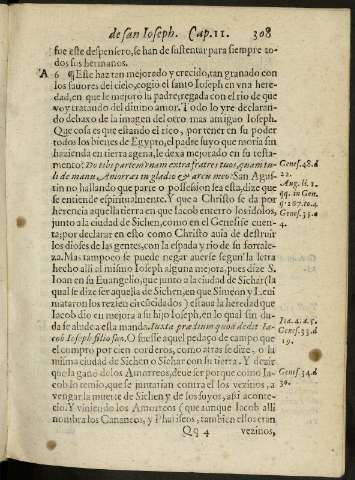 de san Ioseph. Cap. II. 308
fue este despensero, se han de sustentar para siempre to-
dos sus hermanos.
A 6 ¶ Este haz tan mejorado y crecido, tan granado con
los fauores del cielo, cogio el santo Ioseph en vna here-
dad, en que le mejoro su padre; regada con el rio de que
voy tratando del diuino amor. Todo lo yre declaran-
do debaxo de la imagen del otro mas antiguo Ioseph.
Que cosa es que estando el rico, por tener en su poder
todos los bienes de Egypto, el padre suyo que moria sin
hazienda en tierra agena, le dexa mejorado en su testa-
mento? Do tibi partem vnam extra fratres tuos, quam tu-
li de manu Amorræi in gladio & arcu meo: San Agus-
tin no hallando que parte o possession sea esta, dize que
se entiende espiritualmente. Y que a Christo se da por
herencia aquella tierra en que Iacob enterro los idolos,
junto a la ciudad de Sichen, como en el Genesi se cuen-
ta; por declarar en esto como Christo auia de destruir
los dioses de las gentes, con la espada y rio de su fortale-
za. Mas tampoco se puede negar auerse segun la letra
hecho alli al mismo Ioseph alguna mejora, pues dize S.
Ioan en su Euangelio, que junto a la ciudad de Sichar (la
qual se dize ser aquella de Sichen, en que Simeon y Leui
mataron los rezien circūcidados) estaua la heredad que
Iacob dio en mejora a su hijo Ioseph, en lo qual sin du-
da se alude a esta manda. Iuxta prædium quod dedit Ia-
cob Ioseph filio suo. O fuesse aquel pedaço de campo que
el compro por cien corderos, como atras se dize, o la
misma ciudad de Sichen o Sichar con su tierra. Y dezir
que la gano de los Amorreos, deue ser porque como Ia-
cob lo temio, que se juntarian contra el los vezinos, a
vengar la muerte de Sichen y de los suyos, assi aconte-
cio. Y viniendo los Amorreos (que aunque Iacob alli
nombra los Cananeos, y Phariseos, tambien ellos eran
Qq 4 vezinos,
Genes. 48. d
22.
Aug. li. 1.
qq. in Gen.
q. 167. to. 4
Genes. 35. a
4.
Ioā. 4. a. 5.
Genes. 33. d
19.
Genes. 34. d
30.